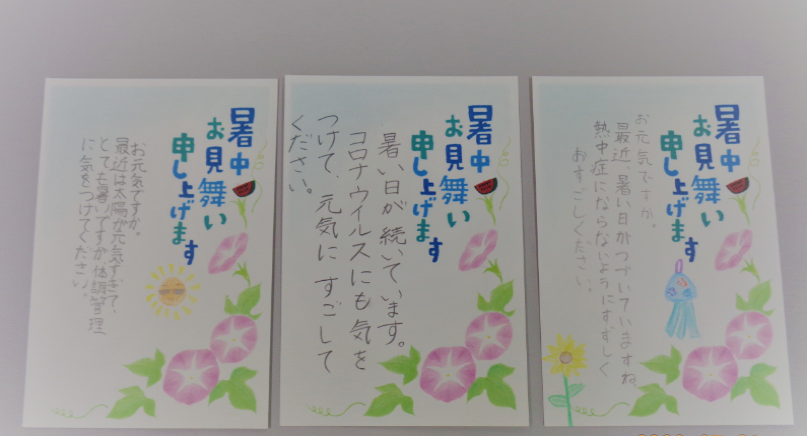 暑中
お見舞い
申し上げます
お元気ですか。
最近は太陽が元気すぎて、
とても暑いですが、体調管理
に気をつけてください。
暑中
お見舞い
申し上げます
暑い日が続いています。
コロナウイルスにも気を
つけて、元気にすごして
ください。
暑中
お見舞い
申し上げます
お元気ですか。
最近、暑い日がつづいていますね。
熱中症にならないようにすずしく
おすごしください。